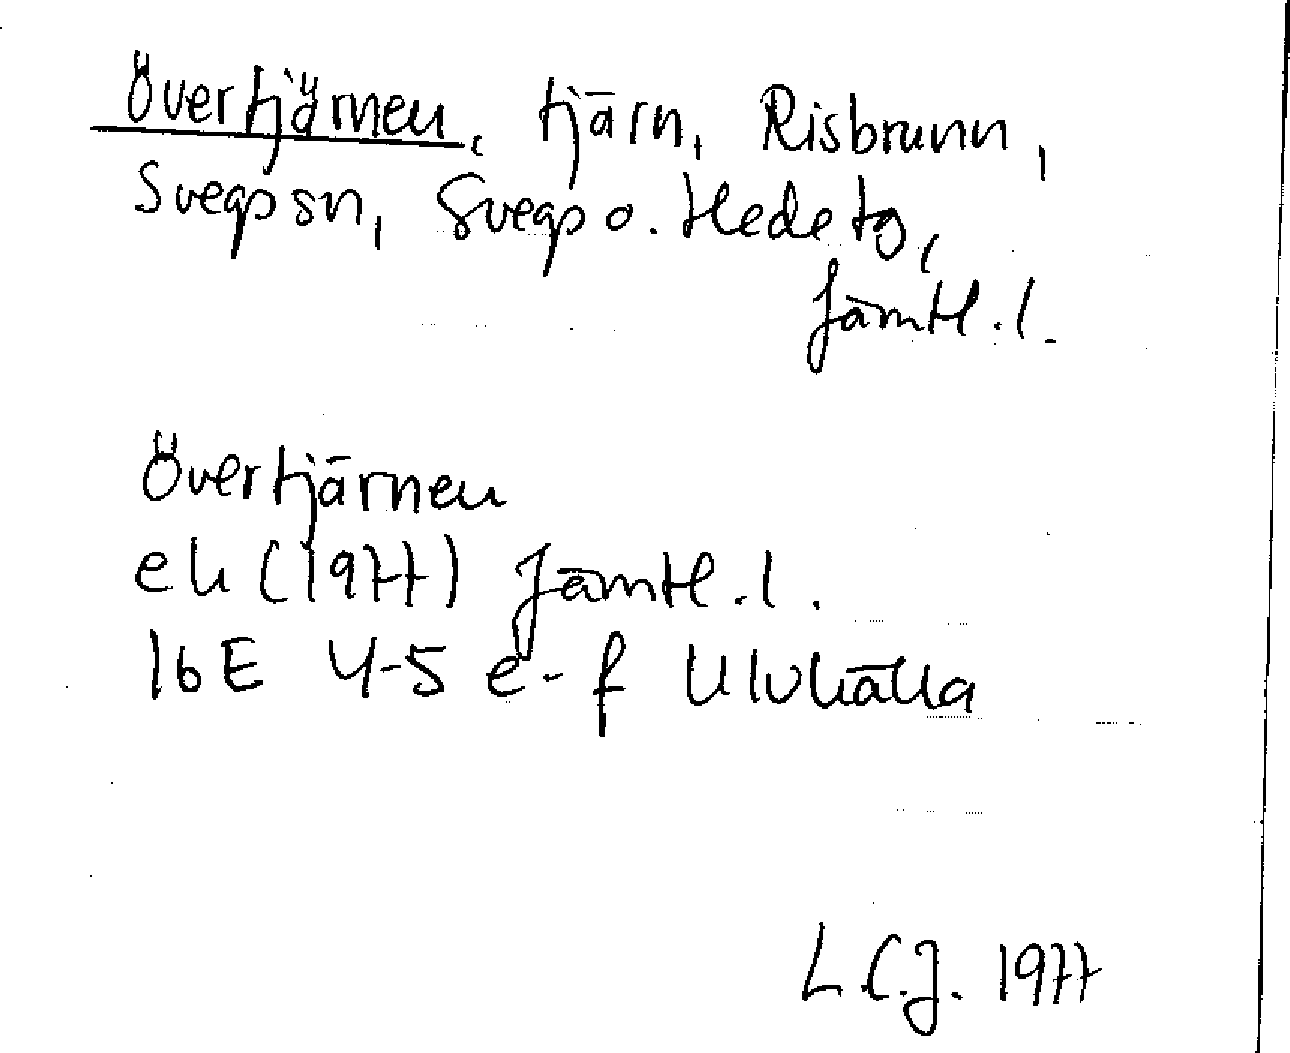 Övertjärnen, tjärn, Risbrunn,
Svegs sn, Svegs o. Hede tg,
Jämtl. l.
Övertjärnen
ek (1977) Jämtl. l.
16E 4-5 e-f Ulvkälla
L.C.J. 1977